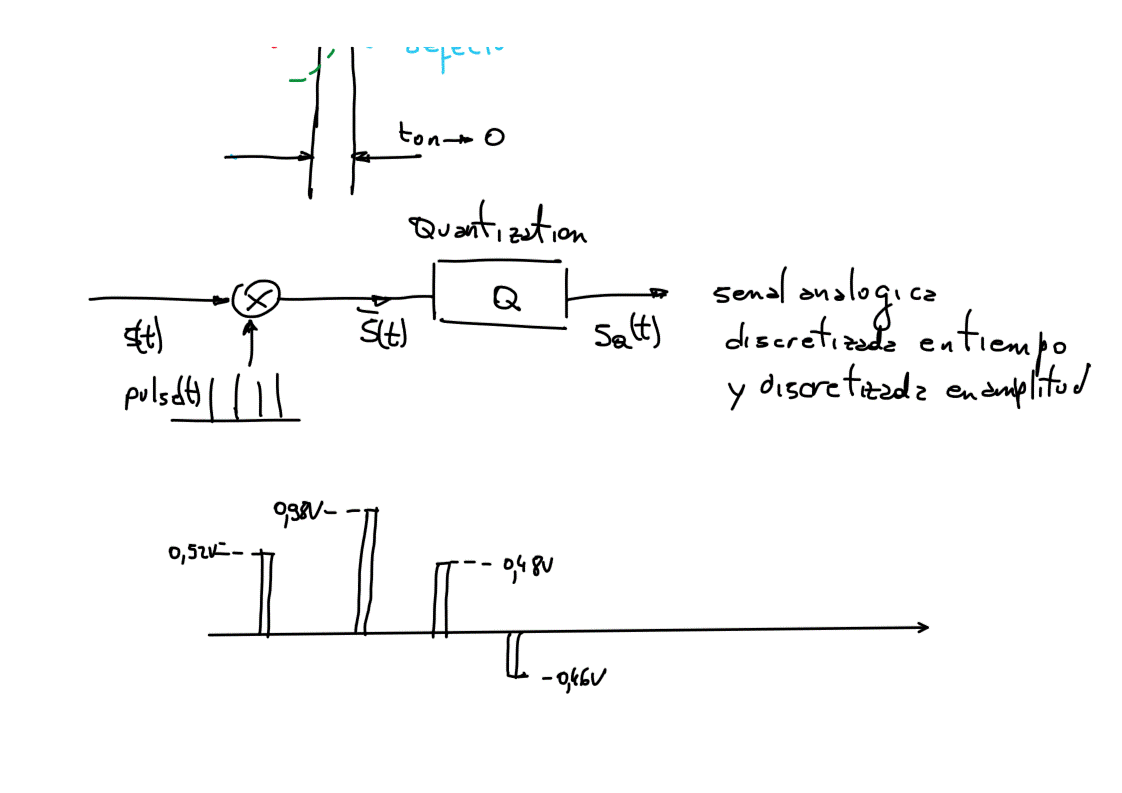 ton→ 0
Quantization
Q
S(t)
S̄(t)
SQ(t)
senal analogica
discretizada en tiempo
y discretizada en amplitud
pulsd(t)
0,98V
0,52V
0,48V
-0,46V